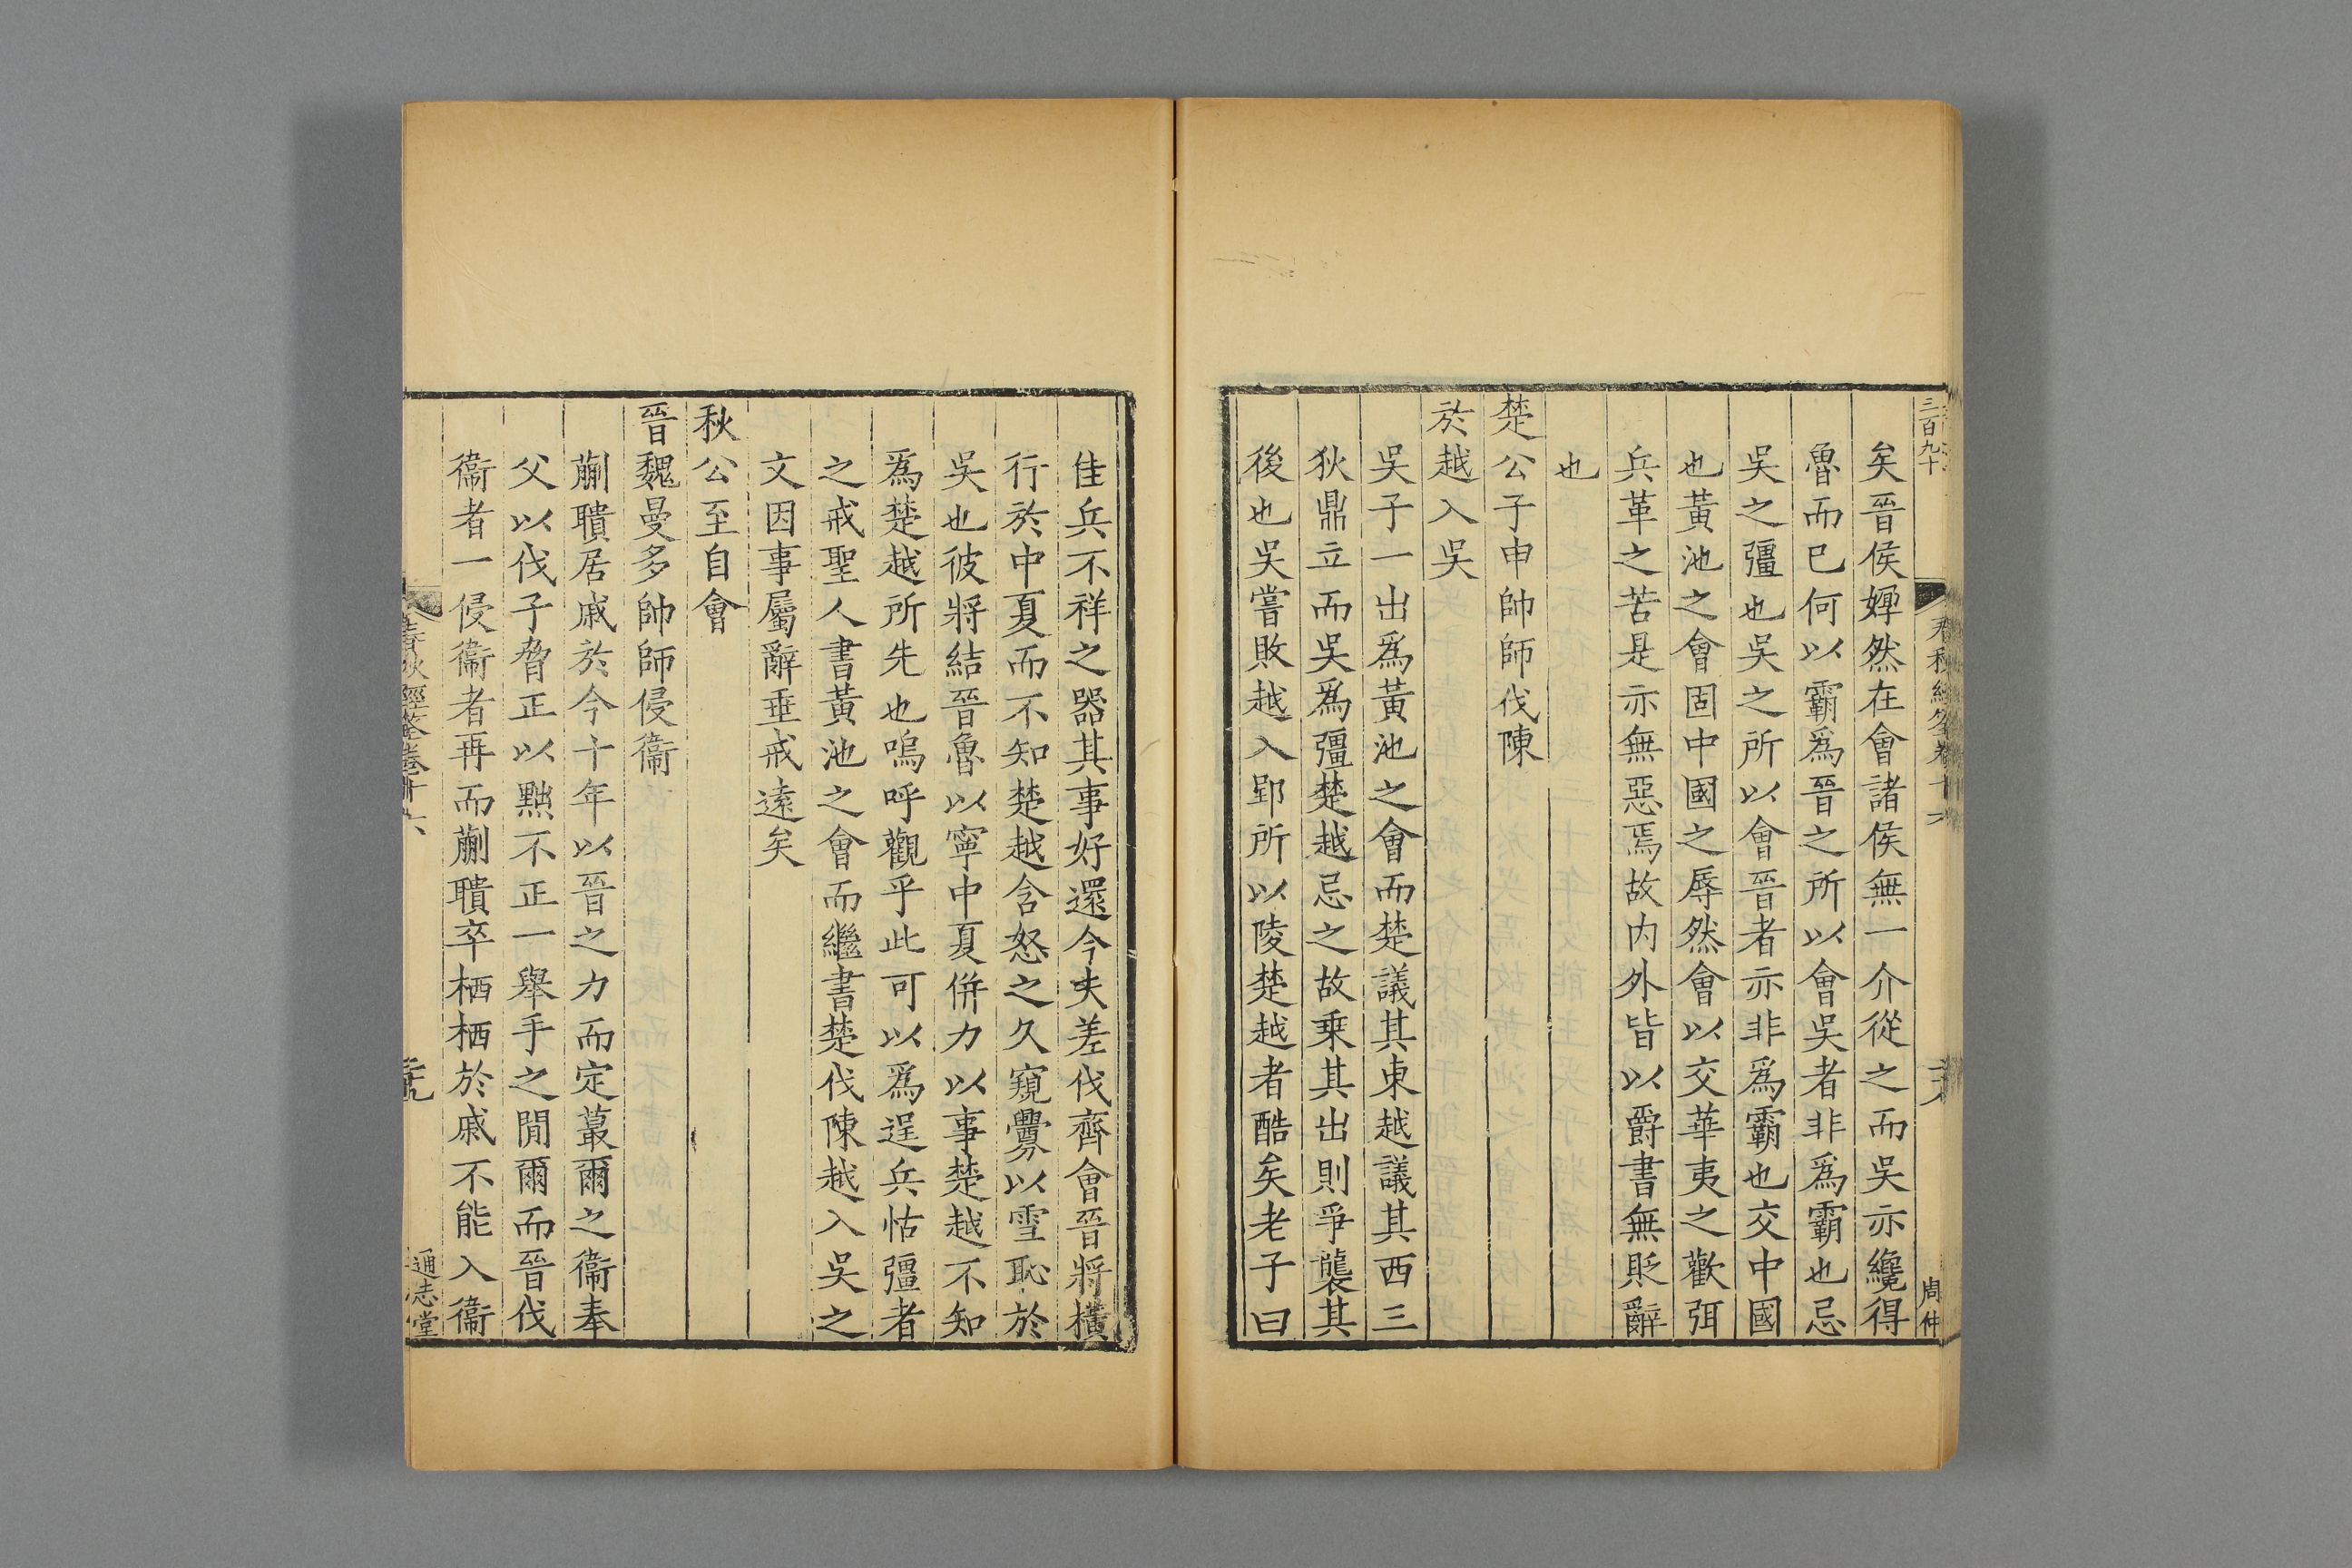 三百九十
春秋經筌卷十六
六
周仲
矣晉侯嬋然在會諸侯無一介從之而吳亦纔得
魯而已何以霸爲晉之所以會吳者非爲霸也忌
吳之彊也吳之所以會晉者亦非爲霸也交中國
也黃池之會固中國之辱然會以交華夷之歡弭
兵革之苦是亦無惡焉故内外皆以爵書無貶辭
也
楚公子申帥師伐陳
於越入吳
吳子一出爲黃池之會而楚議其東越議其西三
狄鼎立而吳爲彊楚越忌之故乗其出則爭襲其
後也吳嘗敗越入郢所以陵楚越者酷矣老子曰
佳兵不祥之器其事好還今夫差伐齊會晉將橫
行於中夏而不知楚越含怒之久窺釁以雪恥於
吳也彼將結晉魯以寧中夏併力以事楚越不知
爲楚越所先也嗚呼觀乎此可以爲逞兵怙彊者
之戒聖人書黃池之會而繼書楚伐陳越入吳之
文因事屬辭垂戒遠矣
秋公至自會
晉魏曼多帥師侵衞
蒯聵居戚於今十年以晉之力而定蕞爾之衞奉
父以伐子脅正以黜不正一舉手之閒爾而晉伐
衞者一侵衞者再而蒯聵卒栖栖於戚不能入衞
春秋經筌卷十六
元
通志堂